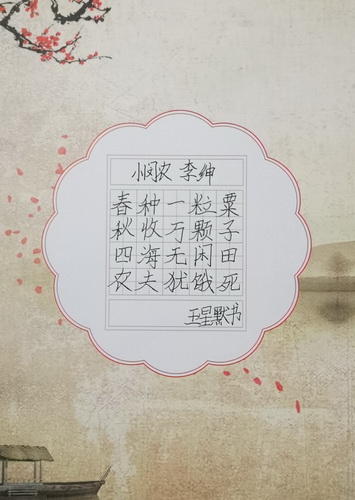 悯农 李绅
春种一粒粟
秋收万颗子
四海无闲田
农夫犹饿死
王星默书